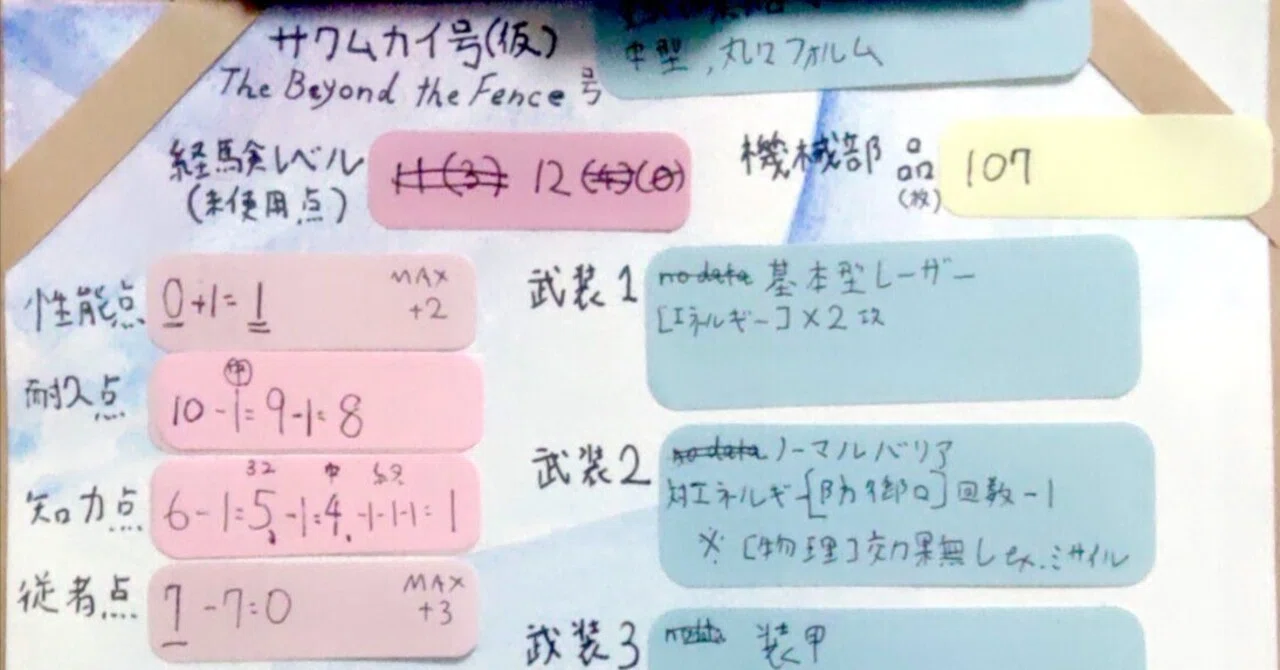 サワムカイ号(仮)
The Beyond the Fence 号
中型,丸いフォルム
経験レベル
(未使用点)
11(3) 12(4)(0)
機械部品
(枚)
107
性能点
0+1=1
MAX
+2
耐久点
10-1=9-1=8
知力点
32 中
6-1=5,-1=4,-1-1-1=1
従者点
7-7=0
MAX
+3
武装1
no data 基本型レーザー
[エネルギー]×2攻
武装2
no data ノーマルバリア
対エネルギー[防御ロ]回数-1
※[物理]効果無し ex.ミサイル
武装3
no data 装甲